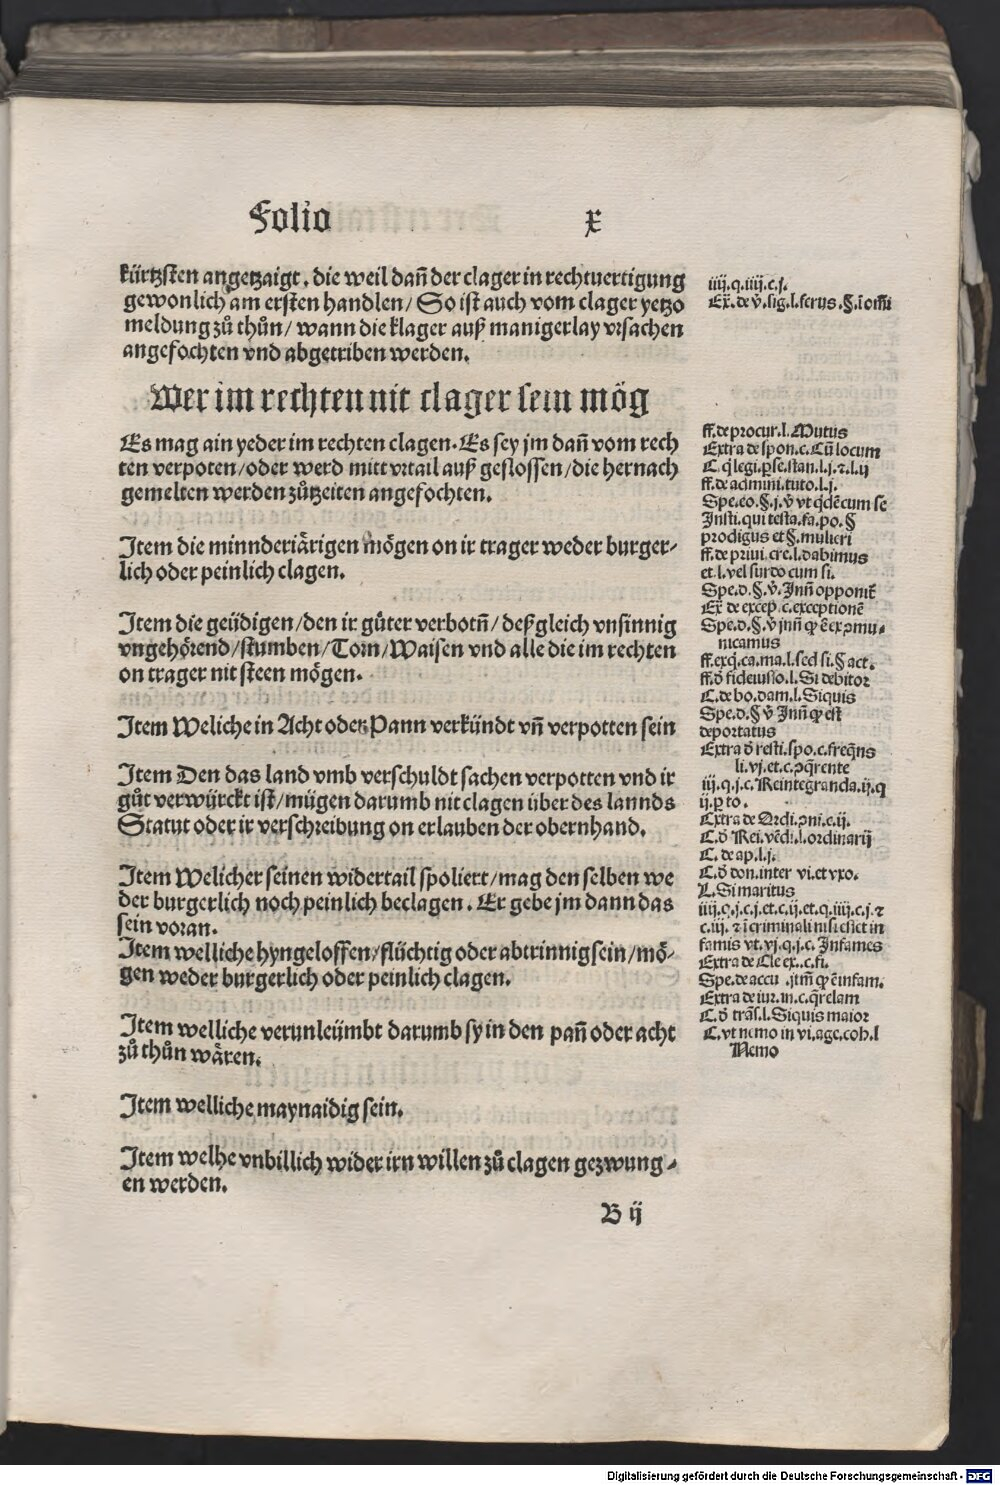 Folio x
kürtzsten angetzaigt. die weil dañ der clager in rechtuertigung
gewonlich am ersten handlen/ So ist auch vom clager yetzo
meldung zů thůn/ wann die klager auß manigerlay vrsachen
angefochten vnd abgetriben werden.
Wer im rechten nit clager sein mög
Es mag ain yeder im rechten clagen. Es sey jm dañ vom rech
ten verpoten/oder werd mitt vrtail auß geslossen/die hernach
gemelten werden zůtzeiten angefochten.
Item die minnderjärigen mögen on ir trager weder burger-
lich oder peinlich clagen.
Item die geüdigen/den ir gůter verbotñ/deßgleich vnsinnig
vngehörend/stumben/Torn/Waisen vnd alle die im rechten
on trager nit steen mögen.
Item Weliche in Acht oder Pann verkündt vñ verpotten sein
Item Den das land vmb verschuldt sachen verpotten vnd ir
gůt verwürckt ist/mügen darumb nit clagen über des lannds
Statut oder ir verschreibung on erlauben der obernhand.
Item Welicher seinen widertail spoliert/mag den selben we
der burgerlich noch peinlich beclagen. Er gebe jm dann das
sein voran.
Item welliche hyngeloffen/flüchtig oder abtrinnig sein/mö-
gen weder burgerlich oder peinlich clagen.
Item welliche verunleümbt darumb sy in den pañ oder acht
zů thůn wären.
Item welliche maynaidig sein.
Item welhe vnbillich wider irn willen zů clagen gezwung-
en werden.
B ij
iiij.q.iiij.c.j.
Ex̄.de v̄.sig.l.ferus.§.
ff.de procur.l.Mutus
Extra de spon.c.Cū locum
C. q̄ legi.ꝑse.stan.l.j.⁊.l.ij
ff.de admini.tuto.l.j.
Spe.eo.§.j.v̄ vt q̄dē cum se
Insti.qui testa.fa.po.§
prodigus et §.mulieri
ff.de priui.cre.l.dabimus
et.l.vel surdo cum si.
Spe.d.§.v̄.Jnñ opponit̄
Ex̄ de excep̄.c.exceptionē
Spe.d.§.v̄ jnñ ꝙ ē exꝯmu-
nicamus
ff.exq̄.ca.ma.l.sed si.§ act.
ff.d̄ fideiusso.l.Si debitor
C.de bo.dam.l.Siquis
Spe.d.§ v̄ Jnñ ꝙ est
deportatus
Extra d̄ resti.spo.c.freq̄ns
li.vj.et.c.ꝯq̄rente
iij.q.j.c.Reintegranda.ij.q
ij.ꝑ to.
Extra de Ordi.ꝯni.c.ij.
C.d̄ Rei.vēdi.l.ordinarij
C. de ap.l.j.
C.d̄ don.inter vi.et vxo.
L.Si maritus
iiij.q.j.c.j.et.c.ij.et.q.iiij.c.j.⁊
c.iij. ⁊ ī criminali nisi eēt in
famis vt.vj.q.j.c.Infames
Extra de Cle ex..c.fi.
Spe.de accu .jnñ ꝙ ē infam.
Extra de iur.iu.c.q̄relam
C.d̄ trās.l.Siquis maior
C.vt nemo in vi.age.coh.l
Nemo
Digitalisierung gefördert durch die Deutsche Forschungsgemeinschaft - DFG